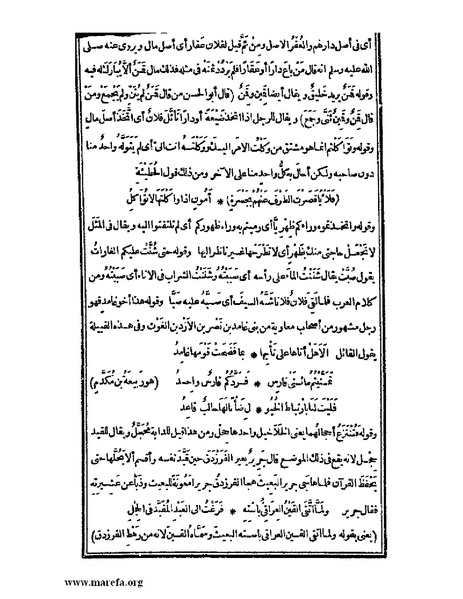 أى فى أصل دارهم والعُقْر الاصل ومِنْ ثَمَّ قيل لفلان عَقار أى أصل مال ويروى عنه صلى
الله عليه وسلم انه قال مَنْ باعَ دارا أو عَقَارا فلم يَرْدُدْ ثمنَه فى مثله فذلك مال قَمِنٌ ألاَّ يُبارَك له فيه
وقوله قَمِنٌ يريد خليقٌ ويقال أيضا قَمِينٌ وقَمَنٌ (قال أبو الحسن من قال قَمَنٌ لم يُثَنِّ ولم يَجْمَعْ ومَنْ
قال قَمِنٌ وقَمِينٌ ثَنَّى وجَمَعَ) ويقال للرجل اذا اتخذ ضَيْعَة أو دارا تَأَثَّلَ فلانٌ أى اتَّخَذَ أصلَ مالٍ
وقوله وتواكلتم انما هو مشتق من وَكَلْتُ الامر اليك ووكَلْتَه أنت الىَّ أى لم يَتَوَلَّه واحدٌ منا
دون صاحبه ولكن أحال به كلُّ واحد منا على الآخر ومن ذلك قول الحُطَيْئَة
(فلأْيًا قَصَرتُ الطَّرفَ عنهم بِجَسْرةٍ) * أَمُونٍ اذا واكَلْتَها لا تُواكِلُ
وقوله واتخذتموه وراءكم ظِهْرِيًّا أى رميتم به وراء ظهوركم أى لم تلتفتوا اليه ويقال فى المَثَل
لا تَجْعَلْ حاجتى منك بظَهْرٍ أى لا تَطْرَحْها غير ناظر اليها وقوله حتى شُنَّت عليكم الغارات
يقول صُبَّت يقال شَنَنْتُ الماءَ على رأسه أى صَبَبْتُه وشَنَنْتُ الشراب فى الاناء أى صَبَبْتُه ومن
كلام العرب فلما لقى فلانٌ فلانا شَنَّه السيفَ أى صبَّه عليه صَبًّا وقوله هذا أخو غامد فهو
رجل مشهور من أصحاب معاوية من بنى غامد بن نصر بن الأزد بن الغوث وفى هذه القبيلة
يقول القائل ألا هَلْ أتاها على نَأْيِها * بما فَضَحَتْ قومَها غامِدُ
تَمَنَّيْتُم مائتَىْ فارسٍ * فَرَدَّكُمُ فارسٌ واحدُ (هو ربيعة بن مُكَدَّم)
فَلَيْتَ لنا بارْتباطِ الخُيُو * لِ ضَأْنًا لها حالبٌ قاعدُ
وقوله فتُنْتَزَعُ أحجالُهما يعنى الخلاخيل واحدها حِجْل ومن هذا قيل للدابة مُحَجَّلٌ ويقال للقيد
حِجْل لانه يقع فى ذلك الموضع قال جرير يُعَيِّر الفرزدق حين قَيَّد نفسه وأقسم ألا يَحُلَّها حتى
يَحْفَظَ القرآن فلما هاجى جرير البَعِيثَ هجا الفرزدقُ جريرا مَعُونةً للبعيث وذَبًّا عن عشيرته
فقال جرير ولمَّا اتَّقَى القَيْنُ العِراقىُّ باسْتِه * فَرَغْتُ الى العبد المُقَيَّد فى الحِجْل
(يعنى بقوله ولما اتقى القين العراقى باسته البعيث وسمَّاه القين لانه من رَهْط الفرزدق)
www.marefa.org